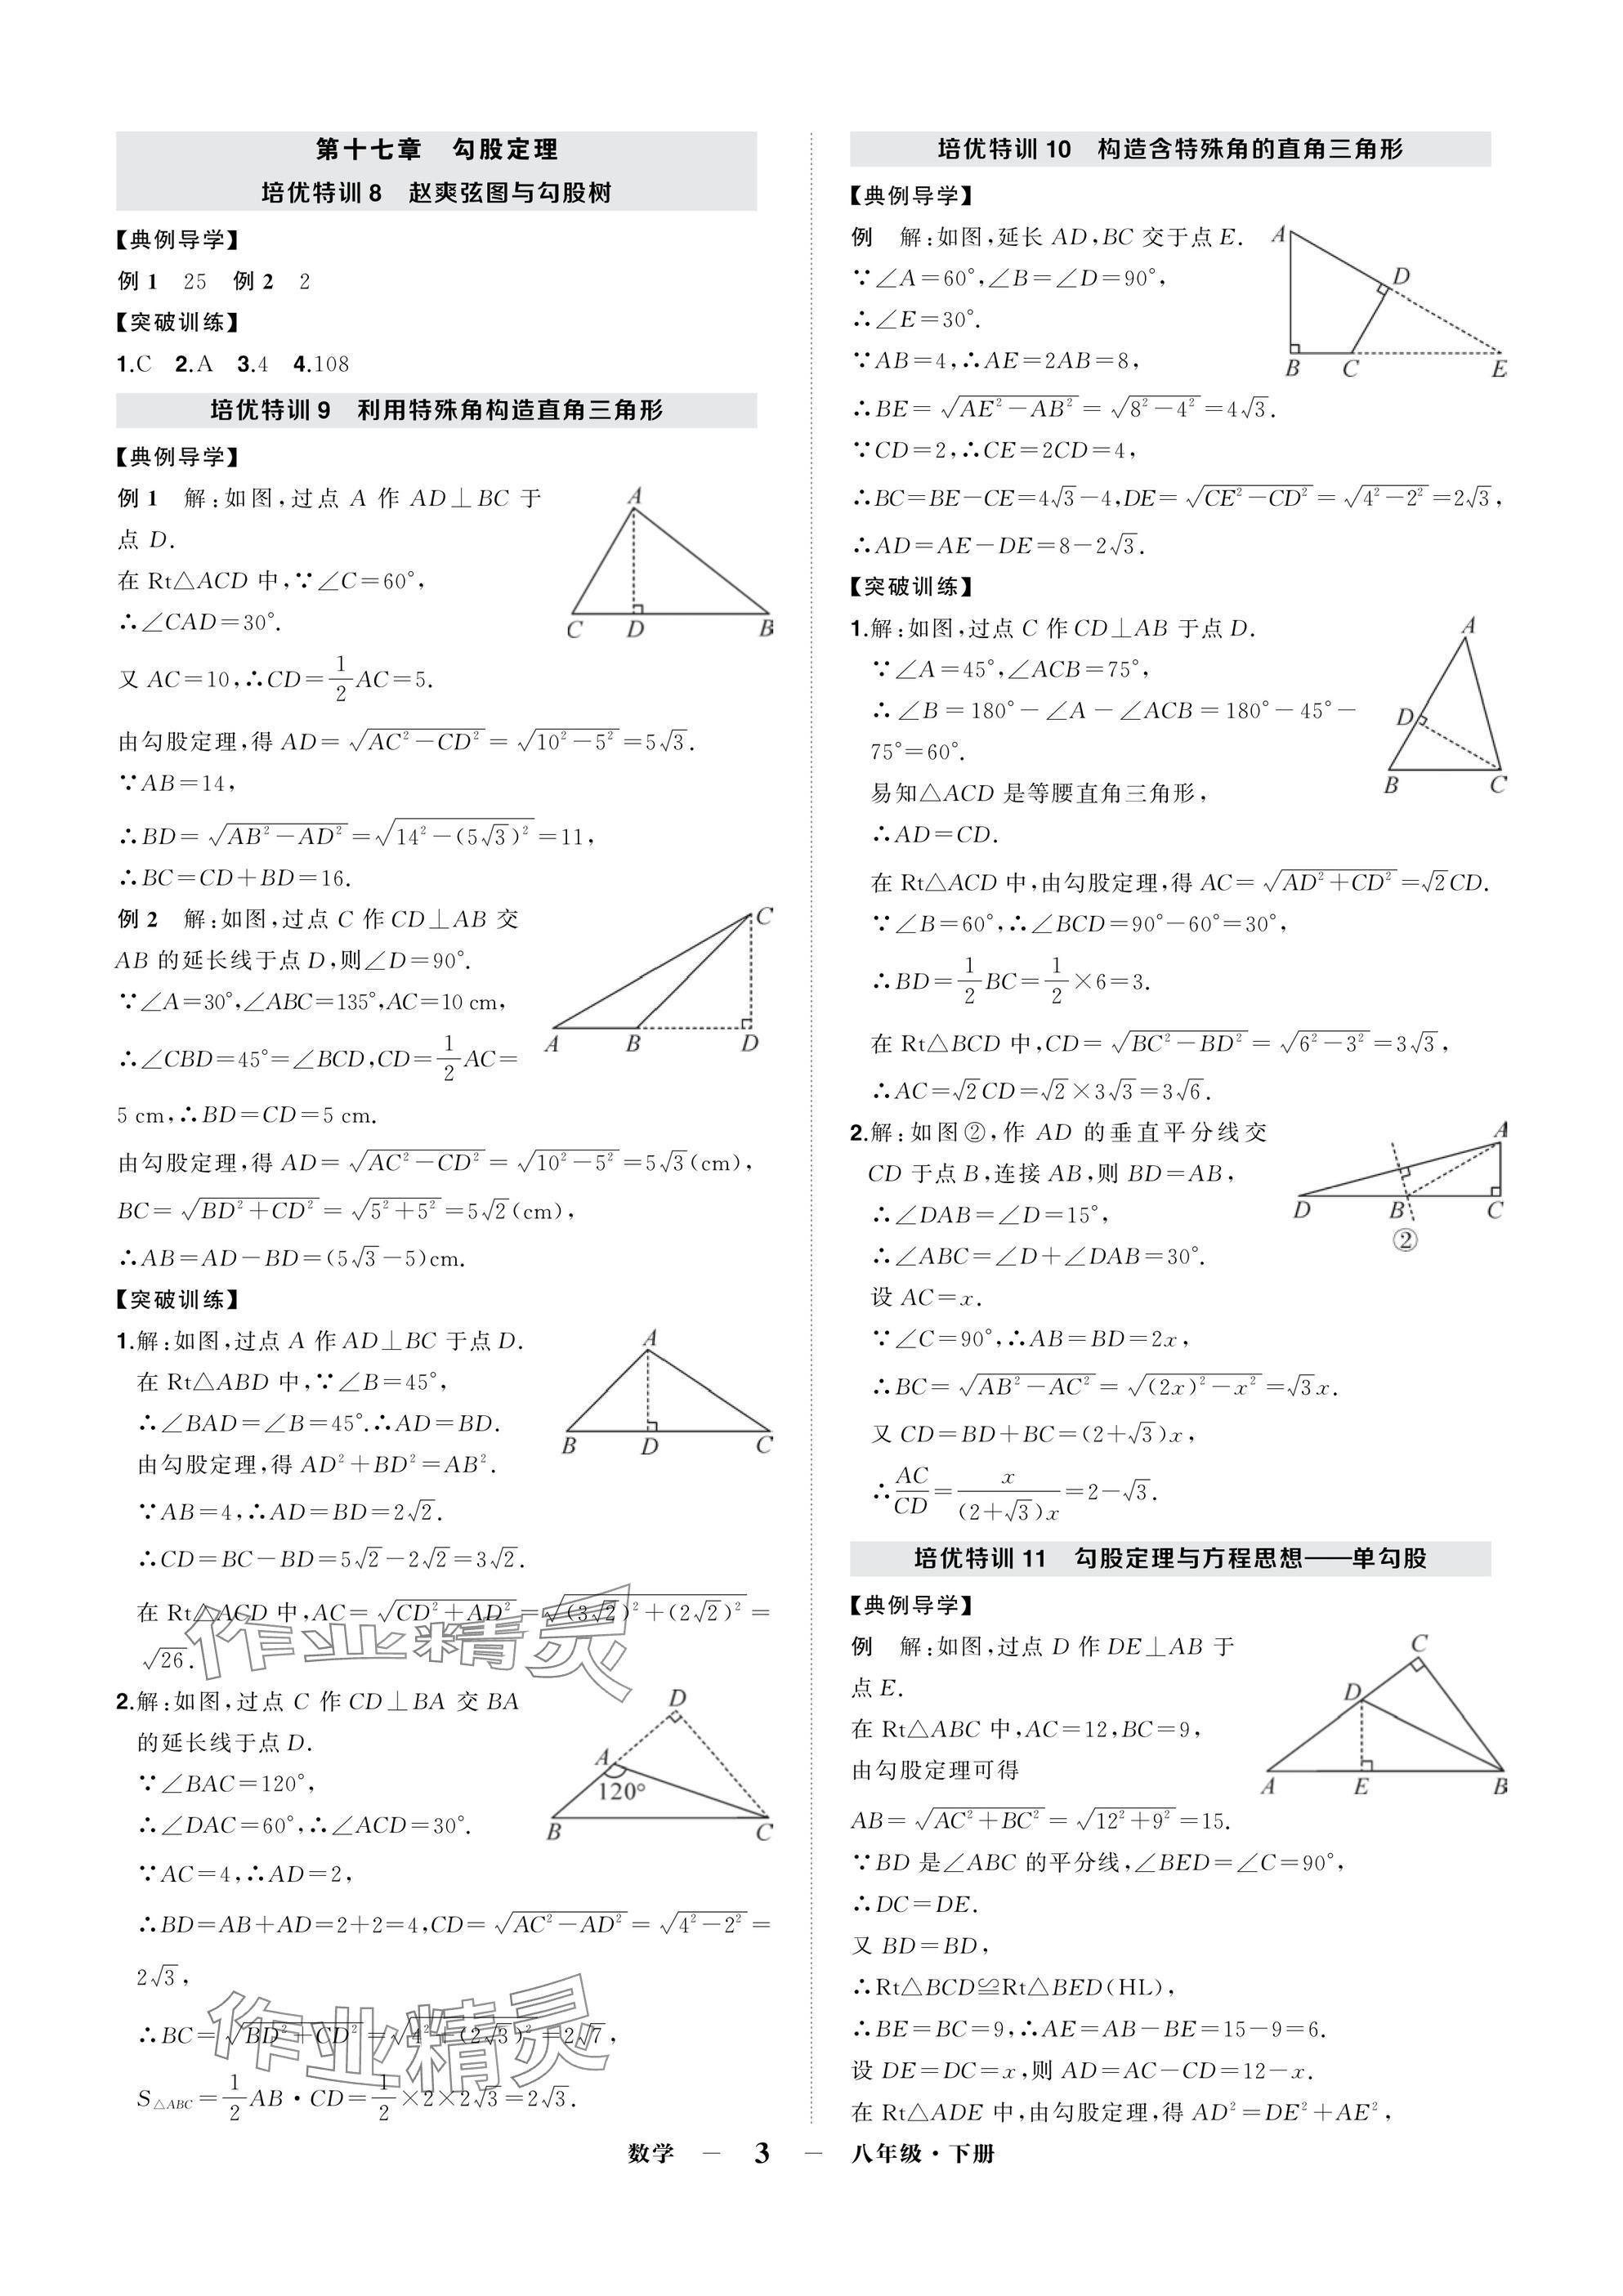 第十七章　勾股定理
培优特训 8　赵爽弦图与勾股树
【典例导学】
例 1　25　例 2　2
【突破训练】
1.C　2.A　3.4　4.108
培优特训 9　利用特殊角构造直角三角形
【典例导学】
例 1　解:如图,过点 A 作 AD⊥BC 于
点 D.
在 Rt△ACD 中,∵∠C=60°,
∴∠CAD=30°.
又 AC=10,∴CD=1/2 AC=5.
由勾股定理,得 AD=√(AC²-CD²)=√(10²-5²)=5√3.
∵AB=14,
∴BD=√(AB²-AD²)=√(14²-(5√3)²)=11,
∴BC=CD+BD=16.
A
C D B
例 2　解:如图,过点 C 作 CD⊥AB 交
AB 的延长线于点 D,则∠D=90°.
∵∠A=30°,∠ABC=135°,AC=10 cm,
∴∠CBD=45°=∠BCD,CD=1/2 AC=
5 cm,∴BD=CD=5 cm.
由勾股定理,得 AD=√(AC²-CD²)=√(10²-5²)=5√3(cm),
BC=√(BD²+CD²)=√(5²+5²)=5√2(cm),
∴AB=AD-BD=(5√3-5)cm.
C
A B D
【突破训练】
1.解:如图,过点 A 作 AD⊥BC 于点 D.
在 Rt△ABD 中,∵∠B=45°,
∴∠BAD=∠B=45°.∴AD=BD.
由勾股定理,得 AD²+BD²=AB².
∵AB=4,∴AD=BD=2√2.
∴CD=BC-BD=5√2-2√2=3√2.
在 Rt△ACD 中,AC=√(CD²+AD²)=√((3√2)²+(2√2)²)=
√26.
A
B D C
作业精灵
2.解:如图,过点 C 作 CD⊥BA 交 BA
的延长线于点 D.
∵∠BAC=120°,
∴∠DAC=60°,∴∠ACD=30°.
∵AC=4,∴AD=2,
∴BD=AB+AD=2+2=4,CD=√(AC²-AD²)=√(4²-2²)=
2√3,
∴BC=√(BD²+CD²)=√(4²+(2√3)²)=2√7,
S△ABC=1/2 AB·CD=1/2×2×2√3=2√3.
D
A
120°
B C
作业精灵
培优特训 10　构造含特殊角的直角三角形
【典例导学】
例　解:如图,延长 AD,BC 交于点 E.
∵∠A=60°,∠B=∠D=90°,
∴∠E=30°.
∵AB=4,∴AE=2AB=8,
∴BE=√(AE²-AB²)=√(8²-4²)=4√3.
∵CD=2,∴CE=2CD=4,
∴BC=BE-CE=4√3-4,DE=√(CE²-CD²)=√(4²-2²)=2√3,
∴AD=AE-DE=8-2√3.
A
D
B C E
【突破训练】
1.解:如图,过点 C 作 CD⊥AB 于点 D.
∵∠A=45°,∠ACB=75°,
∴∠B=180°-∠A-∠ACB=180°-45°-
75°=60°.
易知△ACD 是等腰直角三角形,
∴AD=CD.
在 Rt△ACD 中,由勾股定理,得 AC=√(AD²+CD²)=√2CD.
∵∠B=60°,∴∠BCD=90°-60°=30°,
∴BD=1/2 BC=1/2×6=3.
在 Rt△BCD 中,CD=√(BC²-BD²)=√(6²-3²)=3√3,
∴AC=√2CD=√2×3√3=3√6.
A
D
B C
2.解:如图②,作 AD 的垂直平分线交
CD 于点 B,连接 AB,则 BD=AB,
∴∠DAB=∠D=15°,
∴∠ABC=∠D+∠DAB=30°.
设 AC=x.
∵∠C=90°,∴AB=BD=2x,
∴BC=√(AB²-AC²)=√((2x)²-x²)=√3x.
又 CD=BD+BC=(2+√3)x,
∴AC/CD=x/((2+√3)x)=2-√3.
A
D B C
②
培优特训 11　勾股定理与方程思想——单勾股
【典例导学】
例　解:如图,过点 D 作 DE⊥AB 于
点 E.
在 Rt△ABC 中,AC=12,BC=9,
由勾股定理可得
AB=√(AC²+BC²)=√(12²+9²)=15.
∵BD 是∠ABC 的平分线,∠BED=∠C=90°,
∴DC=DE.
又 BD=BD,
∴Rt△BCD≌Rt△BED(HL),
∴BE=BC=9,∴AE=AB-BE=15-9=6.
设 DE=DC=x,则 AD=AC-CD=12-x.
在 Rt△ADE 中,由勾股定理,得 AD²=DE²+AE²,
C
D
A E B
数学 — 3 — 八年级·下册